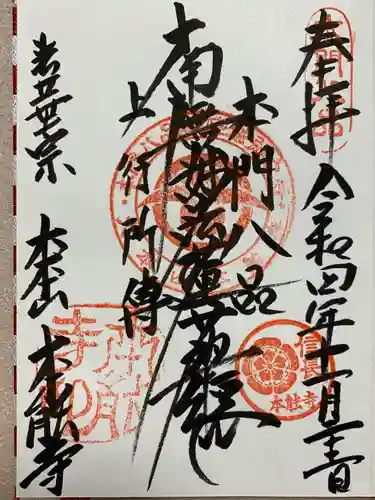 奉拝 令和四年十一月
本門八品
南無妙法蓮華経
上行所傳
法華宗 大本山 本能寺
信長
本能寺
本能寺印